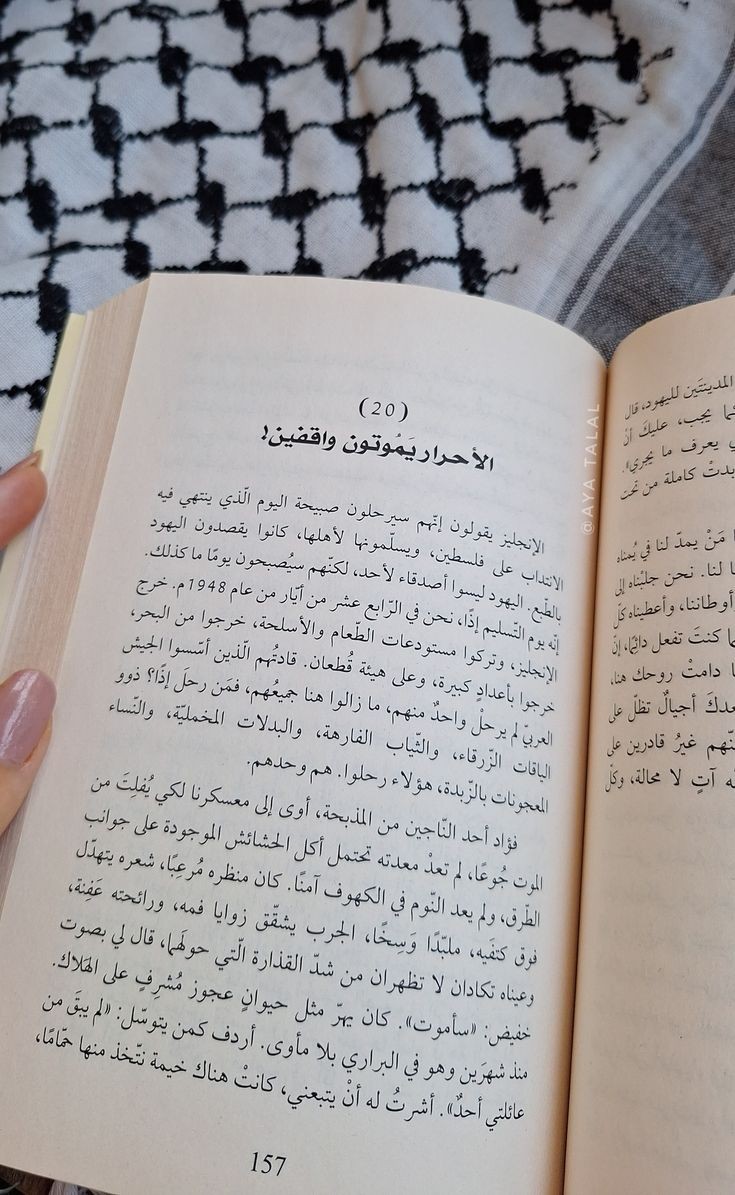 (20)
الأحرار يَمُوتون واقفين!
الإنجليز يقولون إنّهم سيرحلون صبيحة اليوم الّذي ينتهي فيه
الانتداب على فلسطين، ويسلّمونها لأهلها، كانوا يقصدون اليهود
بالطّبع. اليهود ليسوا أصدقاء لأحد، لكنّهم سيُصبحون يومًا ما كذلك.
إنّه يوم التّسليم إذًا، نحن في الرّابع عشر من أيّار من عام 1948م. خرج
الإنجليز، وتركوا مستودعات الطّعام والأسلحة، خرجوا من البحر،
خرجوا بأعدادٍ كبيرة، وعلى هيئة قُطعان. قادتُهم الّذين أسّسوا الجيش
العربيّ لم يرحلْ واحدٌ منهم، ما زالوا هنا جميعُهم، فمَن رحلَ إذًا؟ ذوو
الياقات الزّرقاء، والثّياب الفارهة، والبدلات المخمليّة، والنّساء
المعجونات بالزّبدة، هؤلاء رحلوا. هم وحدهم.
فؤاد أحد النّاجين من المذبحة، أوى إلى معسكرنا لكي يُفلِتَ من
الموت جُوعًا، لم تعدْ معدته تحتمل أكل الحشائش الموجودة على جوانب
الطّرق، ولم يعد النّوم في الكهوف آمنًا. كان منظره مُرعِبًا، شعره يتهدّل
فوق كتفَيه، ملبّدًا وَسِخًا، الجرب يشقّق زوايا فمه، ورائحته عَفِنة،
وعيناه تكادان لا تظهران من شدّ القذارة الّتي حولَهما، قال لي بصوت
خفيض: «سأموت». كان يهرّ مثل حيوانٍ عجوز مُشرِفٍ على الهَلاك.
منذ شهرَين وهو في البراري بلا مأوى. أردف كمن يتوسّل: «لم يبقَ من
عائلتي أحدٌ». أشرتُ له أنْ يتبعني، كانتْ هناك خيمة نتّخذ منها حمّامًا،
157
المدينتَين لليهود، قال
كما يجب، عليكَ أنْ
يعرف ما يجري».
بدتْ كاملة من تحت
مَنْ يمدّ لنا في يُمناه
لنا. نحن جلبْناه إلى
أوطاننا، وأعطيناه كلّ
كنتَ تفعل دائمًا، إنّ
دامتْ روحك هنا،
أجيالٌ تظلّ على
غيرُ قادرين على
آتٍ لا محالة، وكلّ
@AYA TALAL